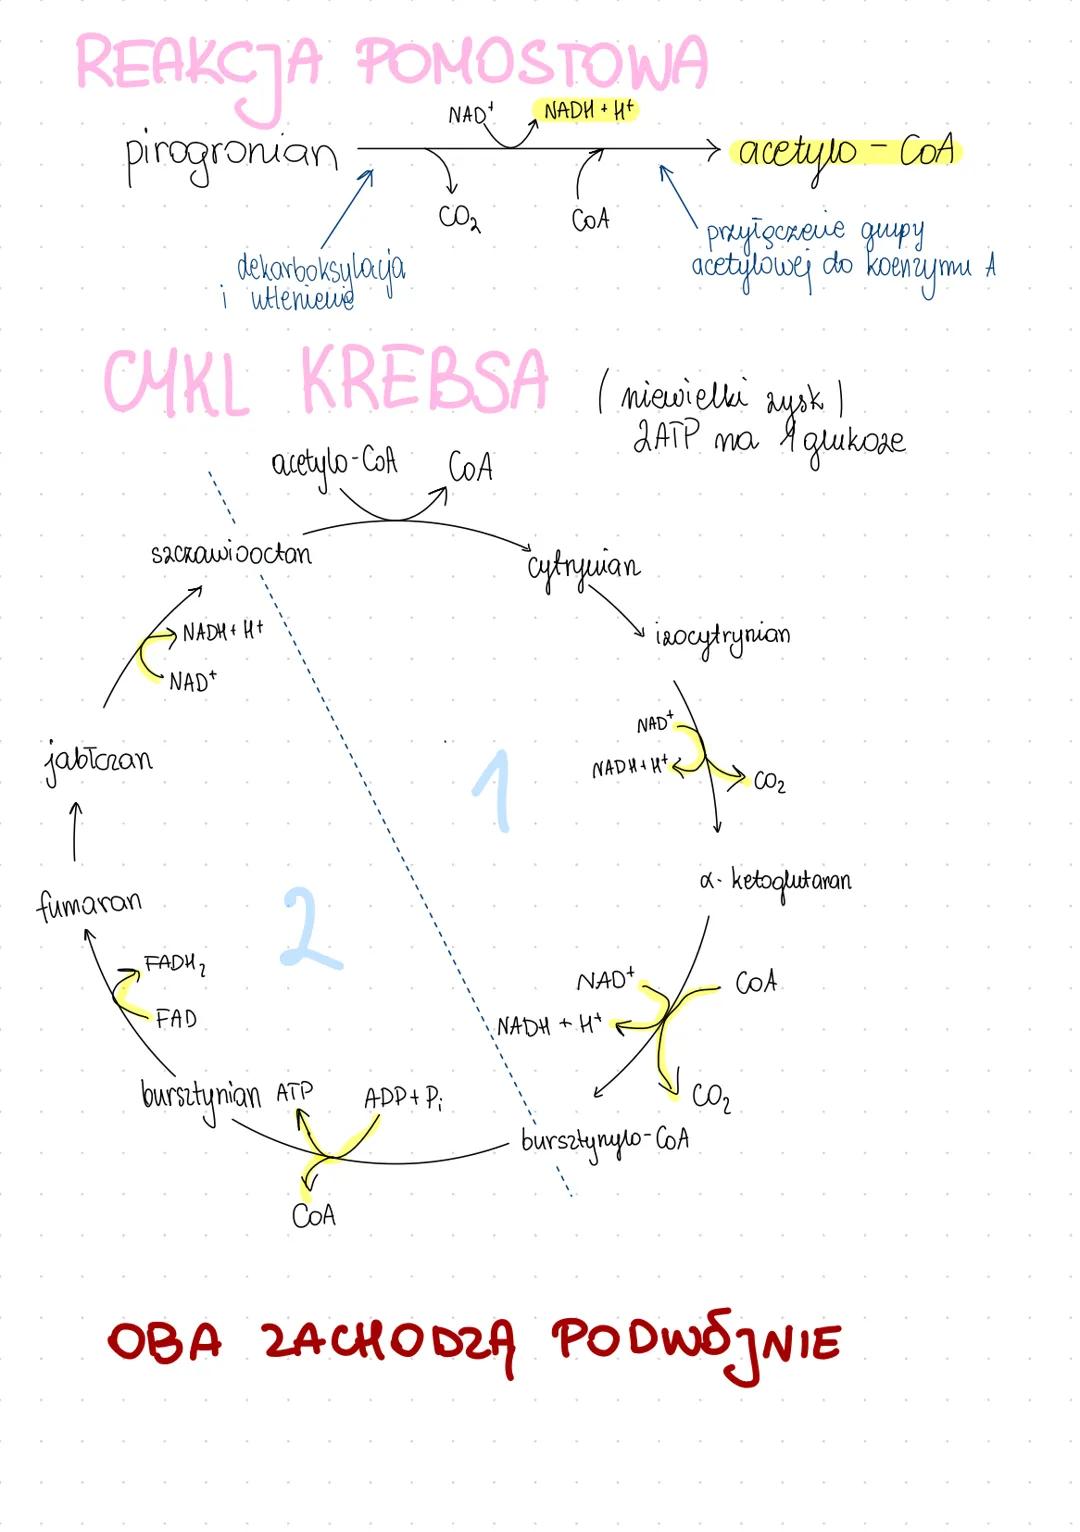 REAKCJA POMOSTOWA
NAD⁺ NADH + H⁺
pirogronian acetylo - CoA
CO₂ CoA
dekarboksylacja
i utlenienie
przyłączenie grupy
acetylowej do koenzymu A
CYKL KREBSA
(niewielki zysk)
2ATP na 1 glukozę
acetylo-CoA CoA
szczawiooctan
cytrynian
izocytrynian
NADH + H⁺
NAD⁺
jabłczan
1
NAD⁺
NADH + H⁺
CO₂
α- ketoglutaran
fumaran
2
FADH₂
FAD
NAD⁺ CoA
NADH + H⁺
CO₂
bursztynian ATP ADP + Pᵢ
bursztynylo-CoA
CoA
OBA ZACHODZĄ PODWÓJNIE